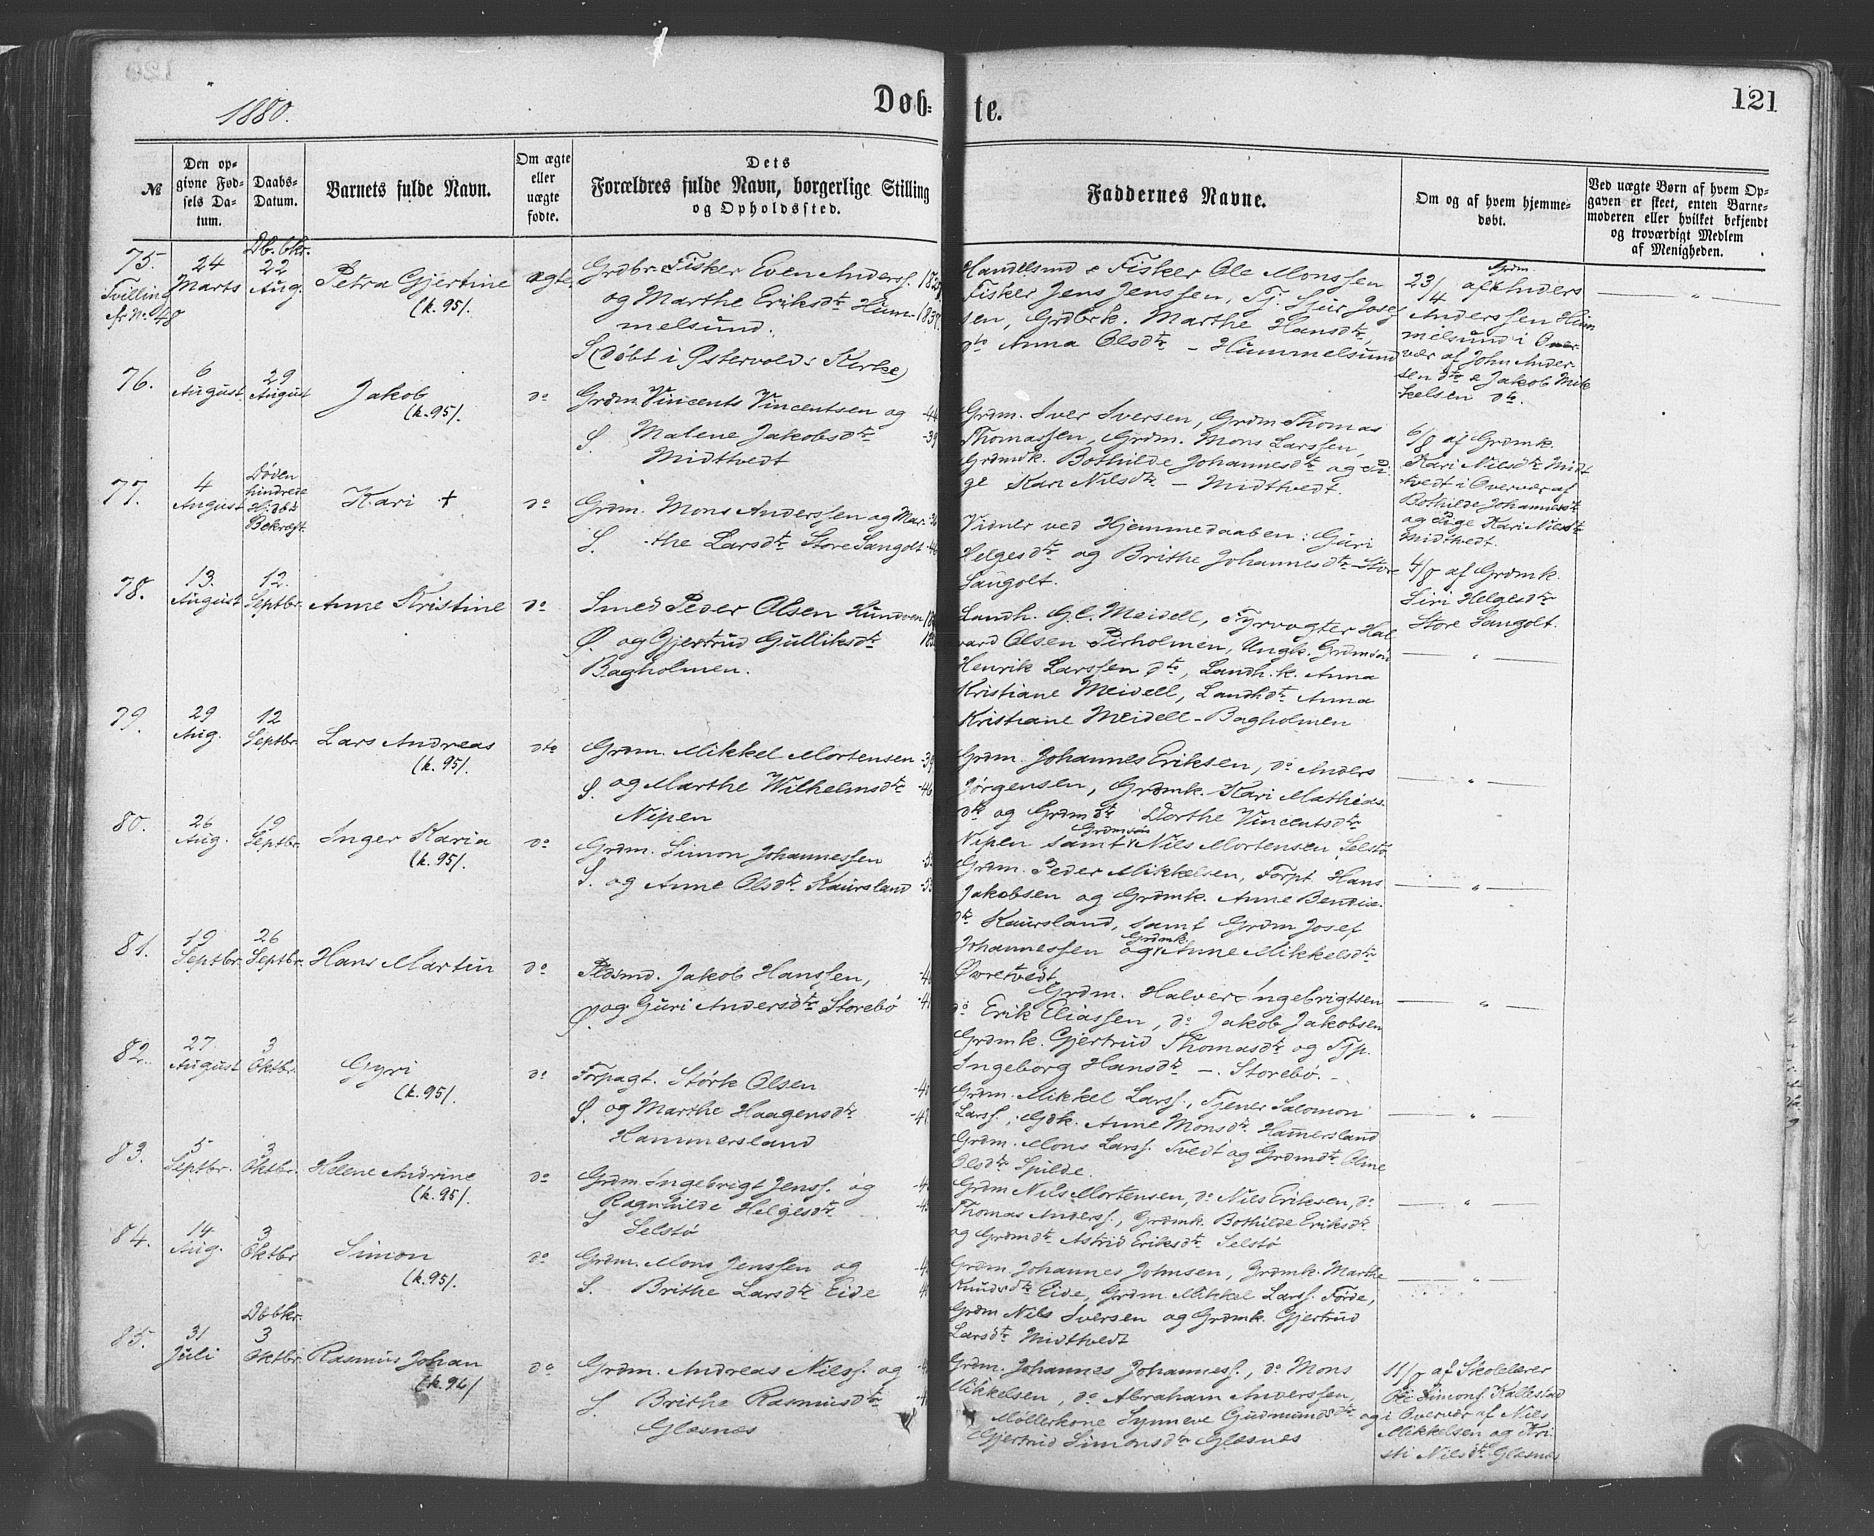 1880.
Døb-
te.
121
№
Den op-
givne Fød-
sels Da-
tum.
Daabs-
Datum.
Barnets fulde Navn.
Om ægte
eller
uægte
fødte.
Dets
Forældres fulde Navn, borgerlige Stilling
og Opholdssted.
Faddernes Navne.
Om og af hvem hjemme-
døbt.
Ved uægte Børn af hvem Op-
gaven er skeet, enten Barne-
moderen eller hvilket bekjendt
og troværdigt Medlem
af Menigheden.
75.
Tvilling
fr No 48
24
Marts
Db. bkr.
22
Aug.
Petra Gjertine
(k. 95).
ægte
Grdbr. Fisker Even Anderss.
og Marthe Eriksdtr Hum-
melsund.
(døbt i Østervolds Kirke)
Handelsmd & Fisker Ole Monssen
Fisker Jens Jenssen, Tj. Sjur Josef
sen, Grdbrk. Marthe Hansdtr,
dto Anna Olsdtr - Hummelsund
23/4 af Grdm Anders
Anderssen Hum
melsund i Over
vær af John Ander
sen dto & Jakob Mik
kelsen dto.
76.
6
August
29
August
Jakob
(k. 95).
do
Grdm. Vincents Vincentsen og -44
S. Malene Jakobsdtr -39
Midtvedt
Grdm. Iver Iversen, Grdm Thomas
Thomassen, Grdm. Mons Larssen,
Grdmk. Bothilde Johannesdtr og Pi-
ge Kari Nilsdtr - Midtvedt.
6/8 af Grdmk.
Kari Nilsdtr Midt
vedt i Overvær af
Bothilde Johannesdtr
og Pige Kari Nilsdtr
Midtvedt.
77.
4
August
Døden
hindrede
Hjdbs
Bekræft.
Kari +
do
Grdm. Mons Anderssen og Mar-
S. the Larsdtr Store Sangolt
Vidner ved Hjemmedaaben: Guri
Helgesdtr og Brithe Johannesdtr Store
Sangolt.
4/8 af Grdmk.
Siri Helgesdtr
Store Sangolt.
78.
13.
August
12.
Septbr.
Anne Kristine
do
Smed Peder Olsen Hundven
Ø. og Gjertrud Gulliksdtr
Bagholmen.
Landh. G. C. Meidell, Fyrvogter Hal-
vard Olsen Pirholmen, Ungk. Grdmsøn
Henrik Larssen dto, Landh. k. Anna
Kristiane Meidell, Landhdtr Anna
Kristiane Meidell - Bagholmen
79.
29
Aug.
12
Septbr.
Lars Andreas
(k. 95).
dto
Grdm. Mikkel Mortensen -39
S. og Marthe Wilhelmsdtr -46
Nipen
Grdm. Johannes Eriksen, do Anders
Jørgensen, Grdmk. Kari Mathias-
dtr og Grdmdtr Dorthe Vincentsdtr
Nipen samt Grdmsøn Nils Mortensen Selstø
80.
26
Aug.
19
Septbr.
Inger Karia
(k. 95).
do
Grdm. Simon Johannessen
S. og Anne Olsdtr Kaursland
Grdm. Peder Mikkelsen, Forpt. Hans
Jakobsen og Grdmk. Anne Bendix-
dtr Kaursland, samt Grdm Josef
Johannessen og Grdmk Anne Mikkelsdtr
Øvretvedt
81.
19
Septbr.
26
Septbr.
Hans Martin
do
Pldsmd. Jakob Hanssen,
Ø. og Guri Andersdtr Storebø
Grdm. Halver Ingebrigtsen
do Erik Eliassen, do Jakob Jakobsen
Grdmk. Gjertrud Thomasdtr og Tjp.
Ingeborg Hansdtr -. Storebø. -
82.
27
August
3
Oktbr.
Gyri
(k. 95).
do
Forpagt. Størk Olsen
S. og Marthe Haagensdtr
Hammersland
Grdm. Mikkel Larss., Tjener Salomon
Larss., Gdk. Anne Monsdtr Hamersland
Grdm. Mons Larss. Tvedt og Grdmdtr Oline
Olsdtr Spilde.
83.
5
Septbr.
3
Oktbr.
Helene Andrine
(k. 95).
do
Grdm. Ingebrigt Jenss. og
Ragnhilde Helgesdtr
S Selstø
Grdm Nils Mortensen, do Nils Eriksen, do
Thomas Anderss., Grdmk. Bothilde Eriksdtr
og Grdmdtr Astrid Eriksdtr Selstø
84.
14
Aug.
3
Oktbr
Simon
(k. 95).
do
Grdm. Mons Jenssen og
S. Brithe Larsdtr Eide
Grdm. Johannes Johnsen, Grdmk. Marthe
Knudsdtr Eide, Grdm. Mikkel Larss. Førde,
Grdm Nils Iversen og Grdmk. Gjertrud
Larsdtr Midtvedt
85.
31
Juli
Dbbtkr.
3
Oktbr.
Rasmus Johan
(k. 96)
do
Grdm. Andreas Nilss. og
S. Brithe Rasmusdtr
Glæsnæs
Grdm. Johannes Johanness., do Mons
Mikkelsen, do Abraham Anderssen,
Møllerkone Synneve Gudmundsdtr og
Gjertrud Simonsdtr Glæsnæs
11/8 af Skolelærer
Ole Simons. Kallestad
i Overvær af Nils
Mikkelsen og Kri
sti Nilsdtr Glæsnæs